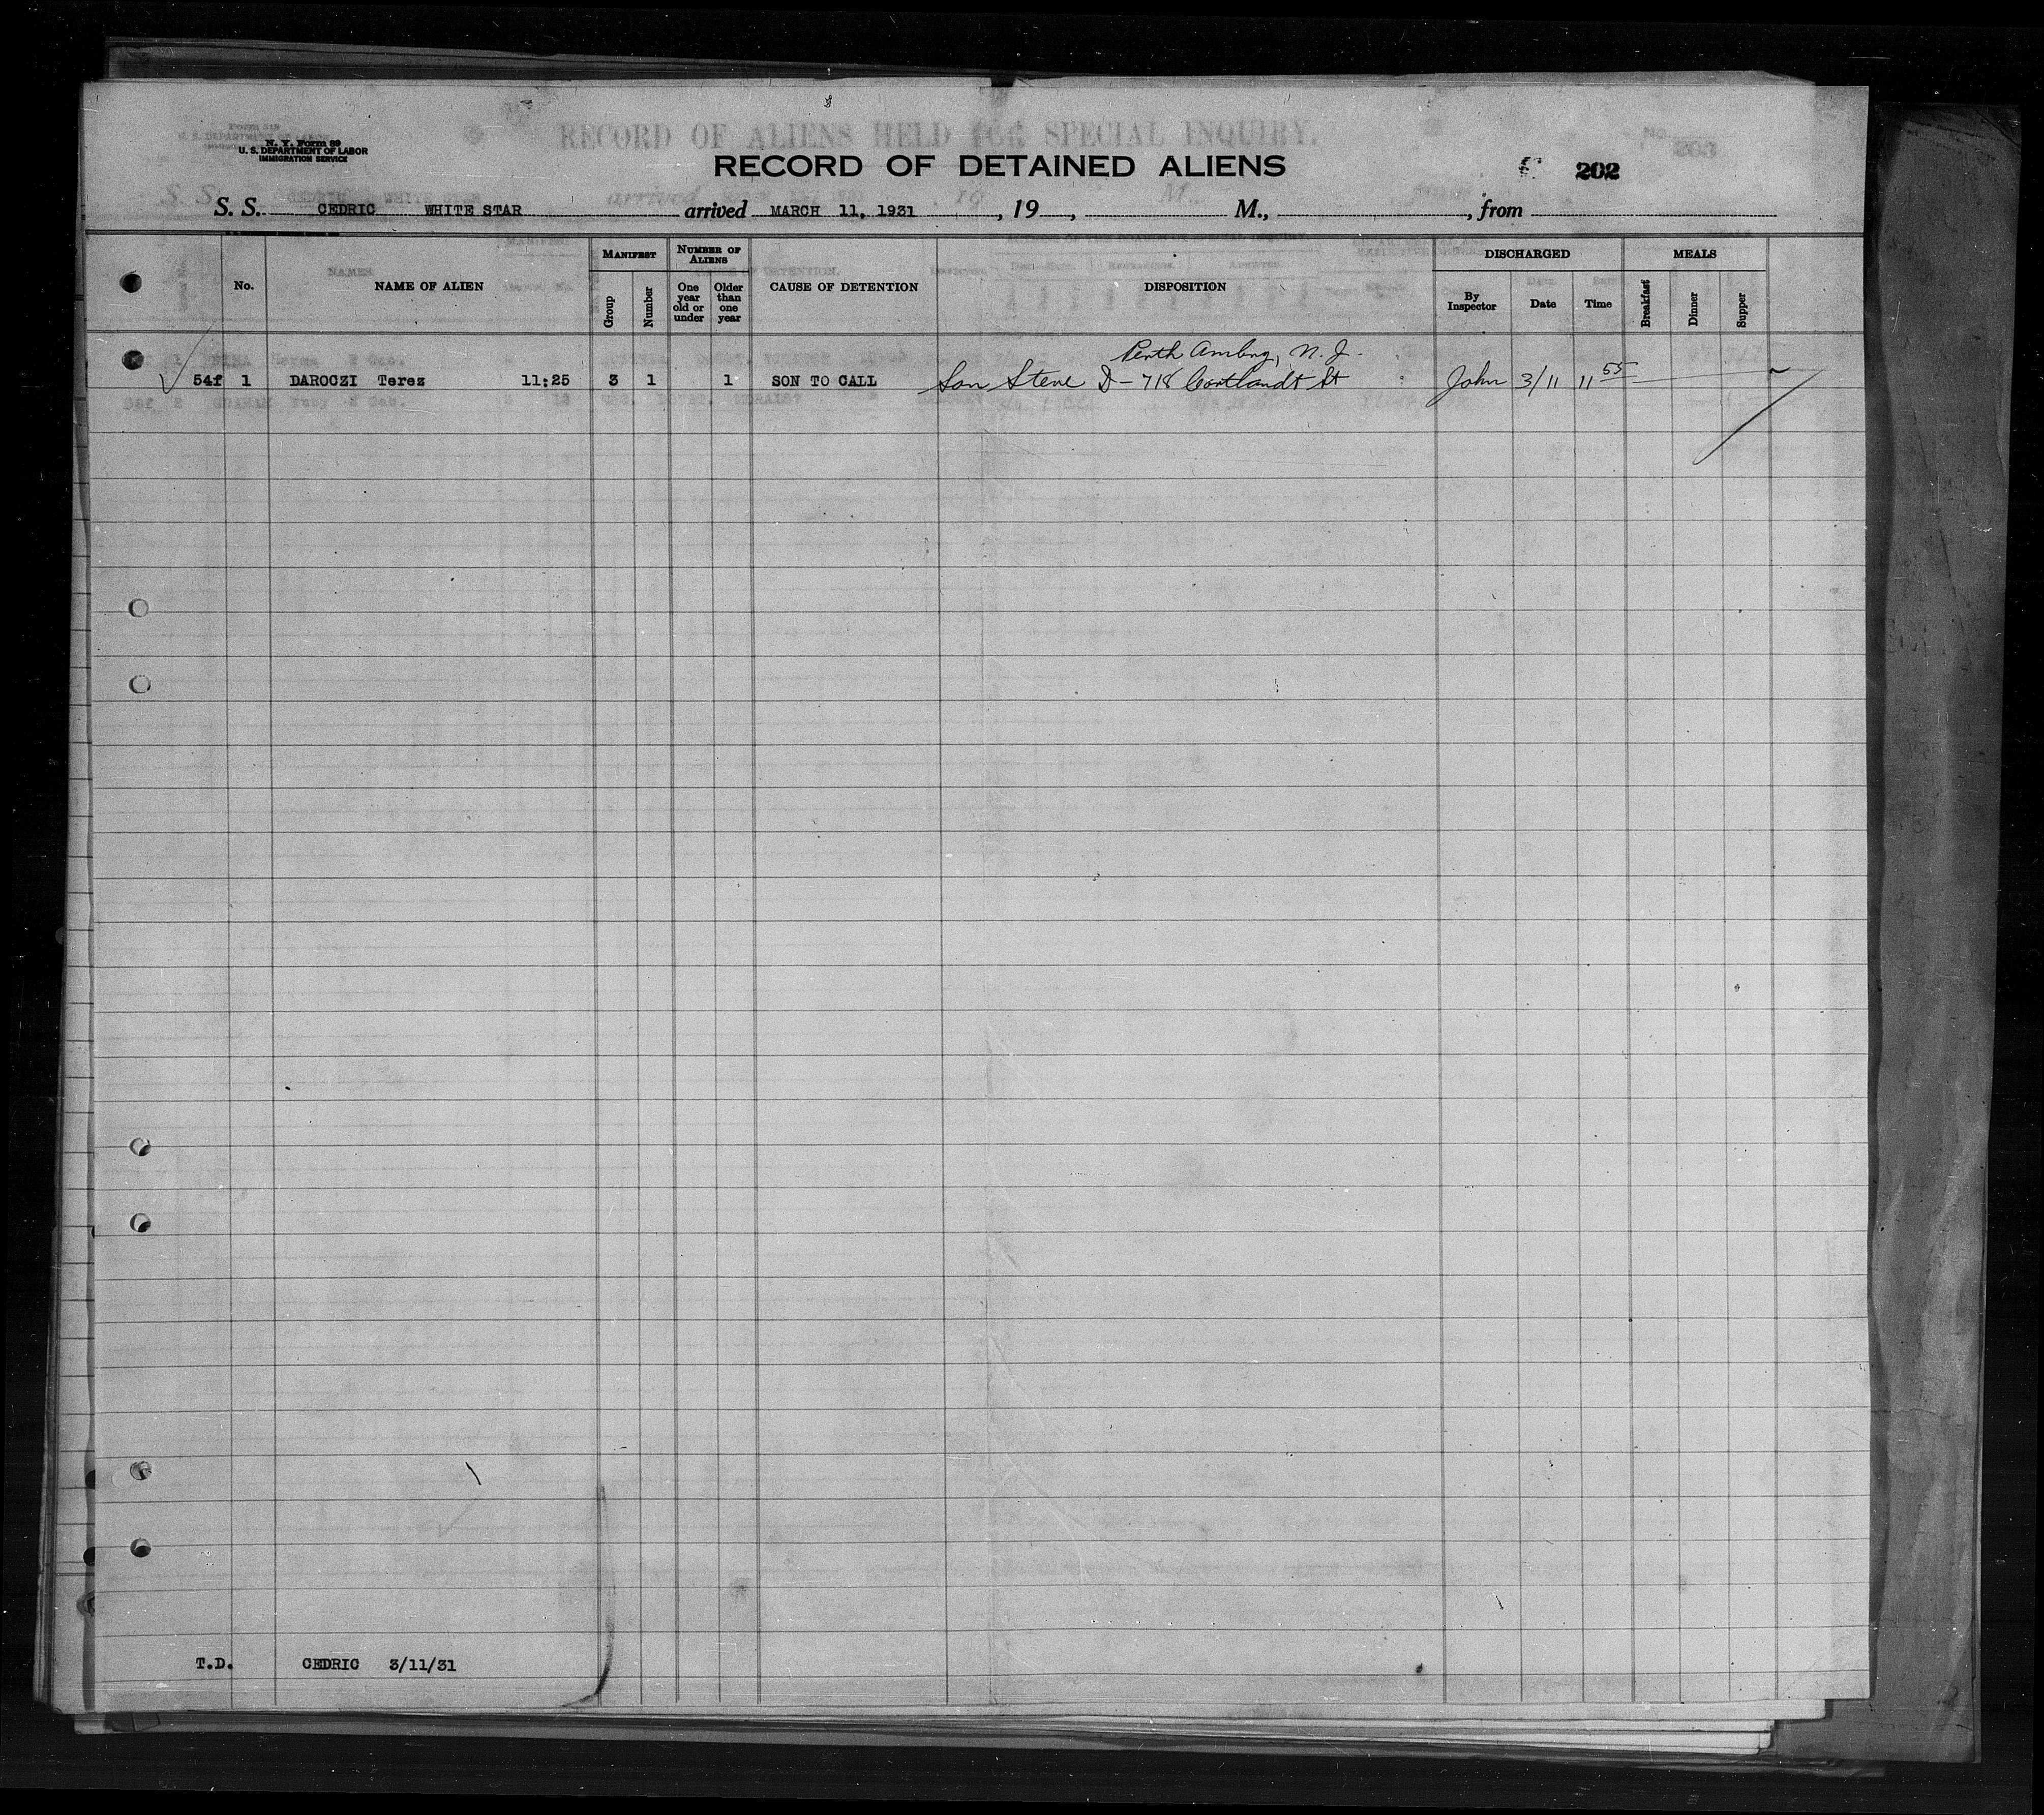 RECORD OF ALIENS HELD FOR SPECIAL INQUIRY.
N. Y. Form 89
U. S. DEPARTMENT OF LABOR
IMMIGRATION SERVICE
RECORD OF DETAINED ALIENS 202
S. S. CEDRIC WHITE STAR arrived MARCH 11, 1931, 19 , M., , from
MANIFEST NUMBER OF ALIENS DISCHARGED MEALS
No. NAME OF ALIEN Group Number One year old or under Older than one year CAUSE OF DETENTION DISPOSITION By Inspector Date Time Breakfast Dinner Supper
Perth Amboy, N. J.
54f 1 DAROCZI Terez 11:25 3 1 1 SON TO CALL Son Steve D - 718 Cortlandt St John 3/11 11 55
T.D. CEDRIC 3/11/31